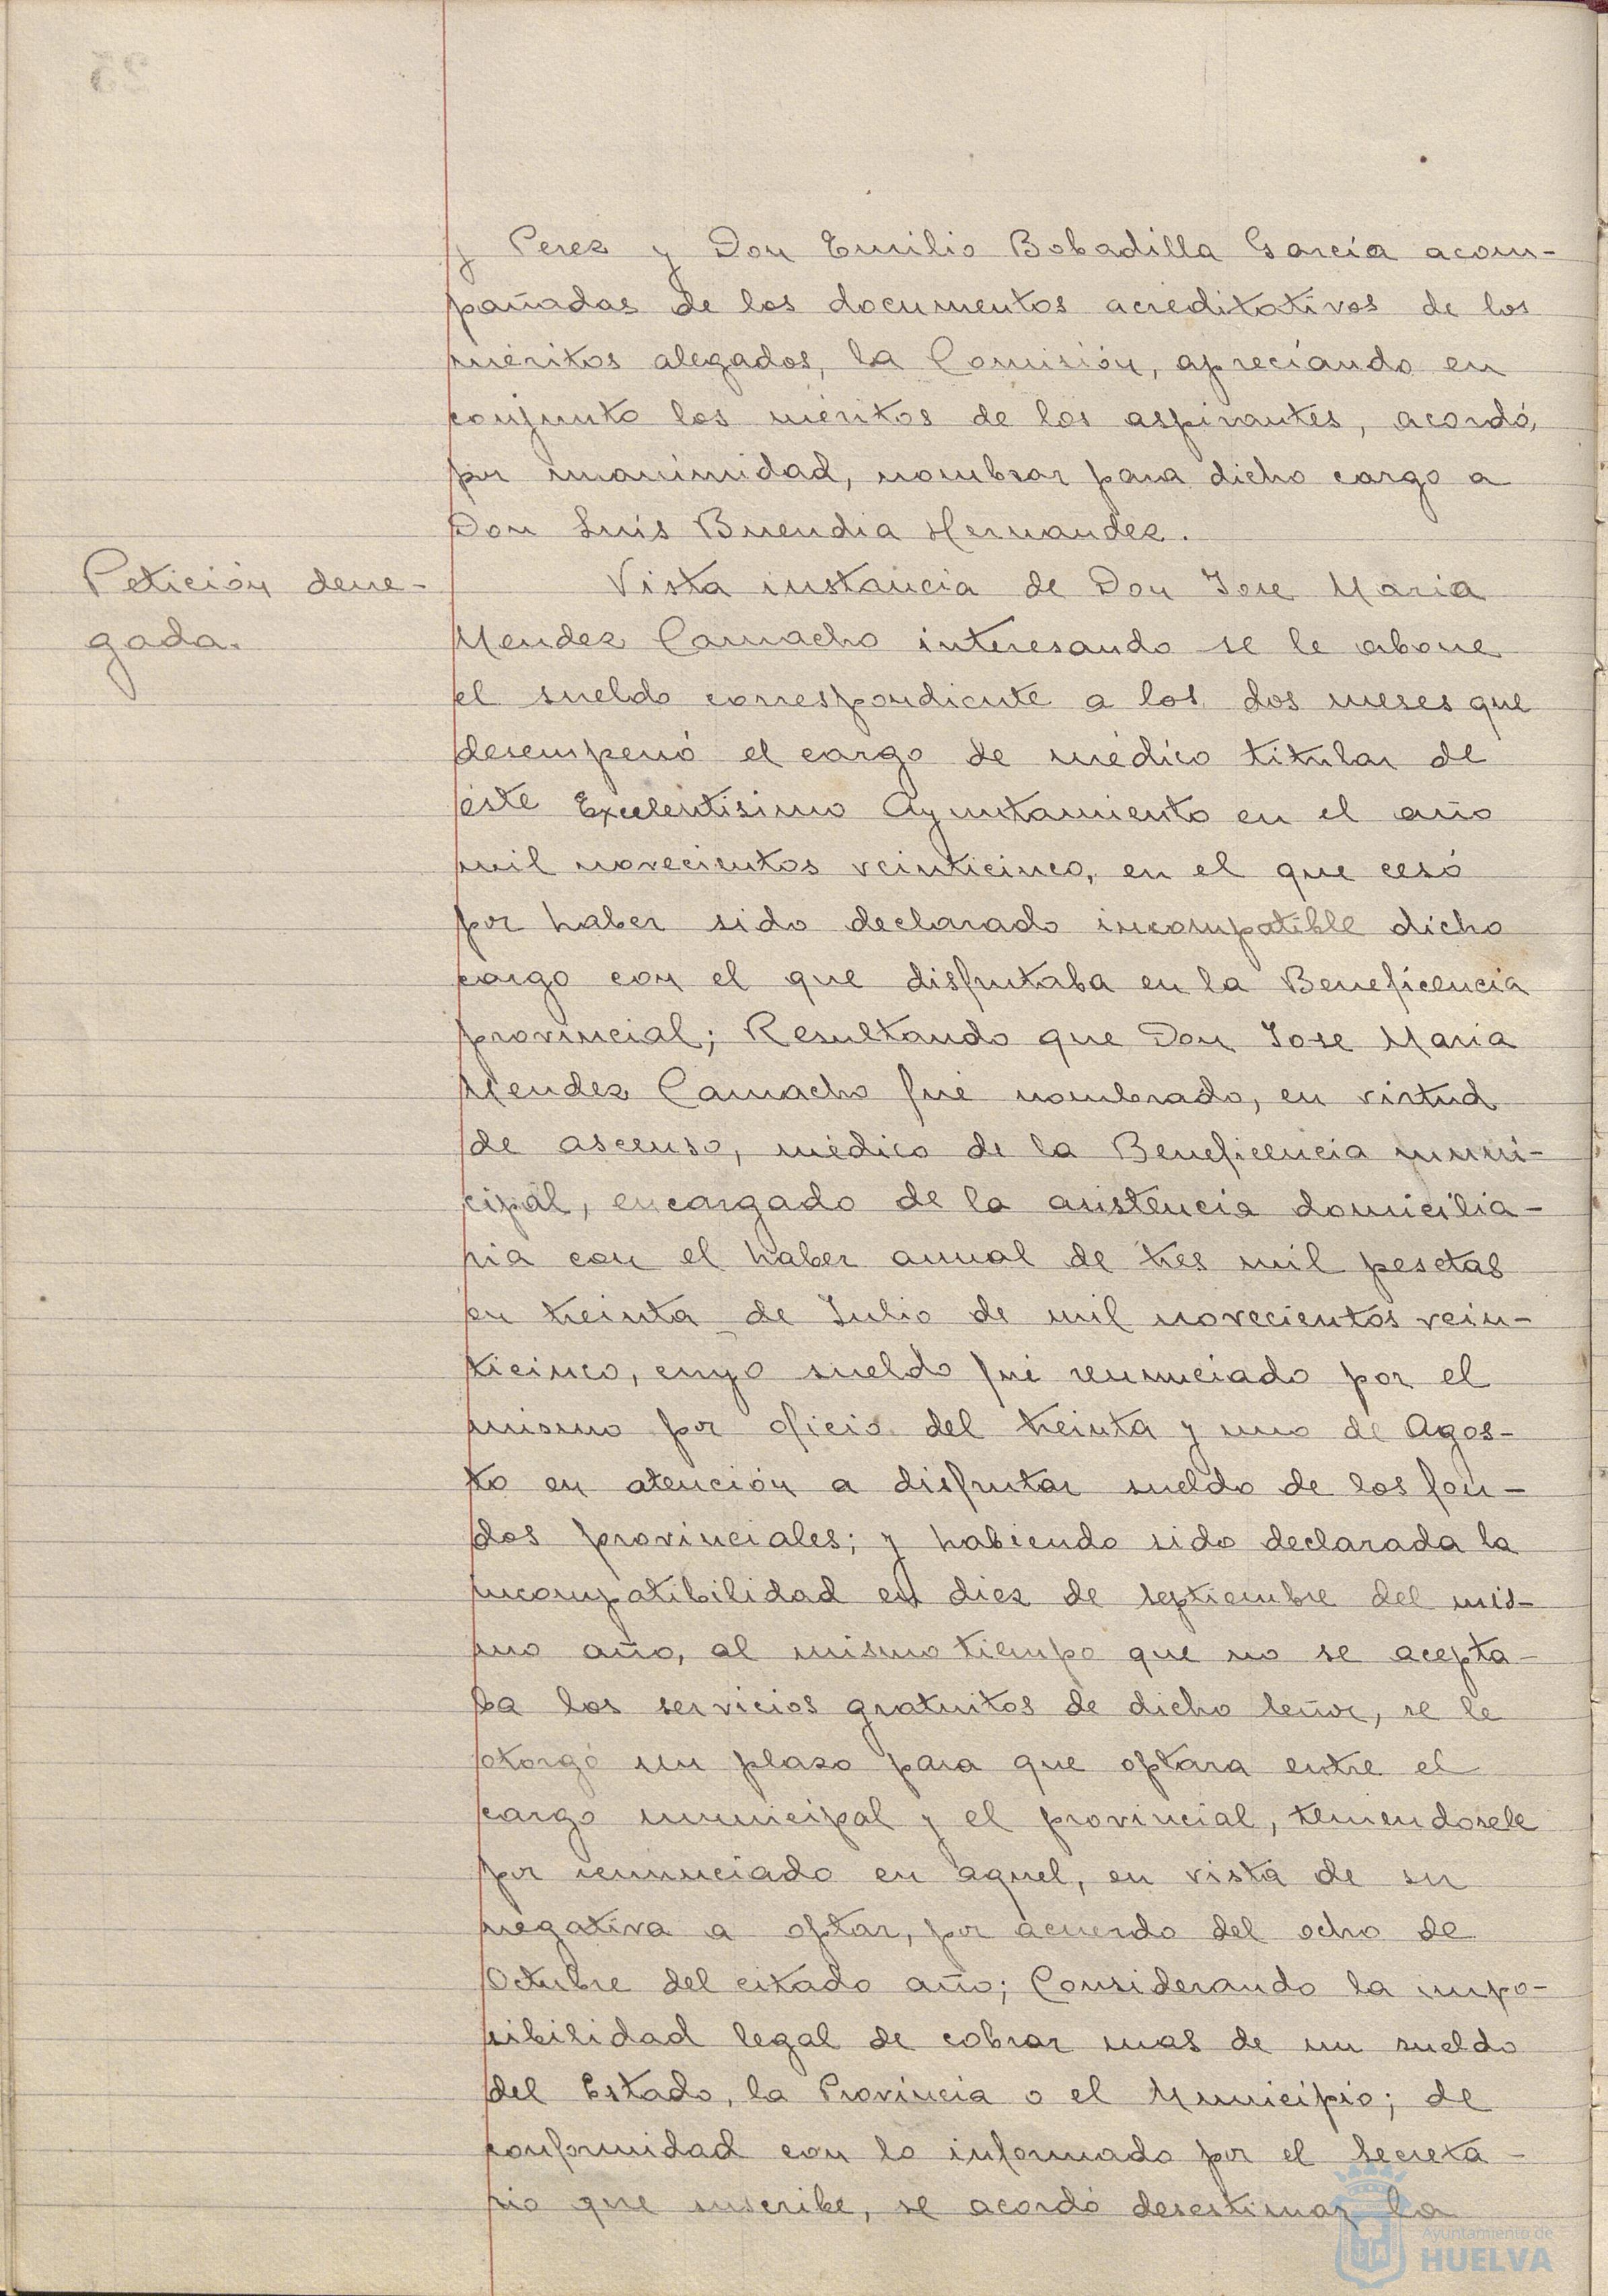 y Perez y Don Emilio Bobadilla García acom-
pañadas de los documentos acreditativos de los
méritos alegados, la Comisión, apreciando en
conjunto los méritos de los aspirantes, acordó,
por unanimidad, nombrar para dicho cargo a
Don Luis Buendia Hernandez.
Petición dene-
gada.
Vista instancia de Don Jose Maria
Mendez Camacho interesando se le abone
el sueldo correspondiente a los dos meses que
desempeñó el cargo de médico titular de
éste Excelentisimo Ayuntamiento en el año
mil novecientos veinticinco, en el que cesó
por haber sido declarado incompatible dicho
cargo con el que disfrutaba en la Beneficencia
provincial; Resultando que Don Jose Maria
Mendez Camacho fué nombrado, en virtud
de ascenso, médico de la Beneficencia muni-
cipal, encargado de la asistencia domicilia-
ria con el haber anual de tres mil pesetas
en treinta de Julio de mil novecientos vein-
ticinco, cuyo sueldo fué renunciado por el
mismo por oficio del treinta y uno de Agos-
to en atención a disfrutar sueldo de los fon-
dos provinciales; y habiendo sido declarada la
incompatibilidad en diez de septiembre del mis-
mo año, al mismo tiempo que no se acepta-
ba los servicios gratuitos de dicho señor, se le
otorgó un plazo para que optara entre el
cargo municipal y el provincial, teniendosele
por renunciado en aquel, en vista de su
negativa a optar, por acuerdo del ocho de
Octubre del citado año; Considerando la impo-
sibilidad legal de cobrar mas de un sueldo
del Estado, la Provincia o el Municipio; de
conformidad con lo informado por el Secreta-
rio que suscribe, se acordó desestimar la
Ayuntamiento de
HUELVA